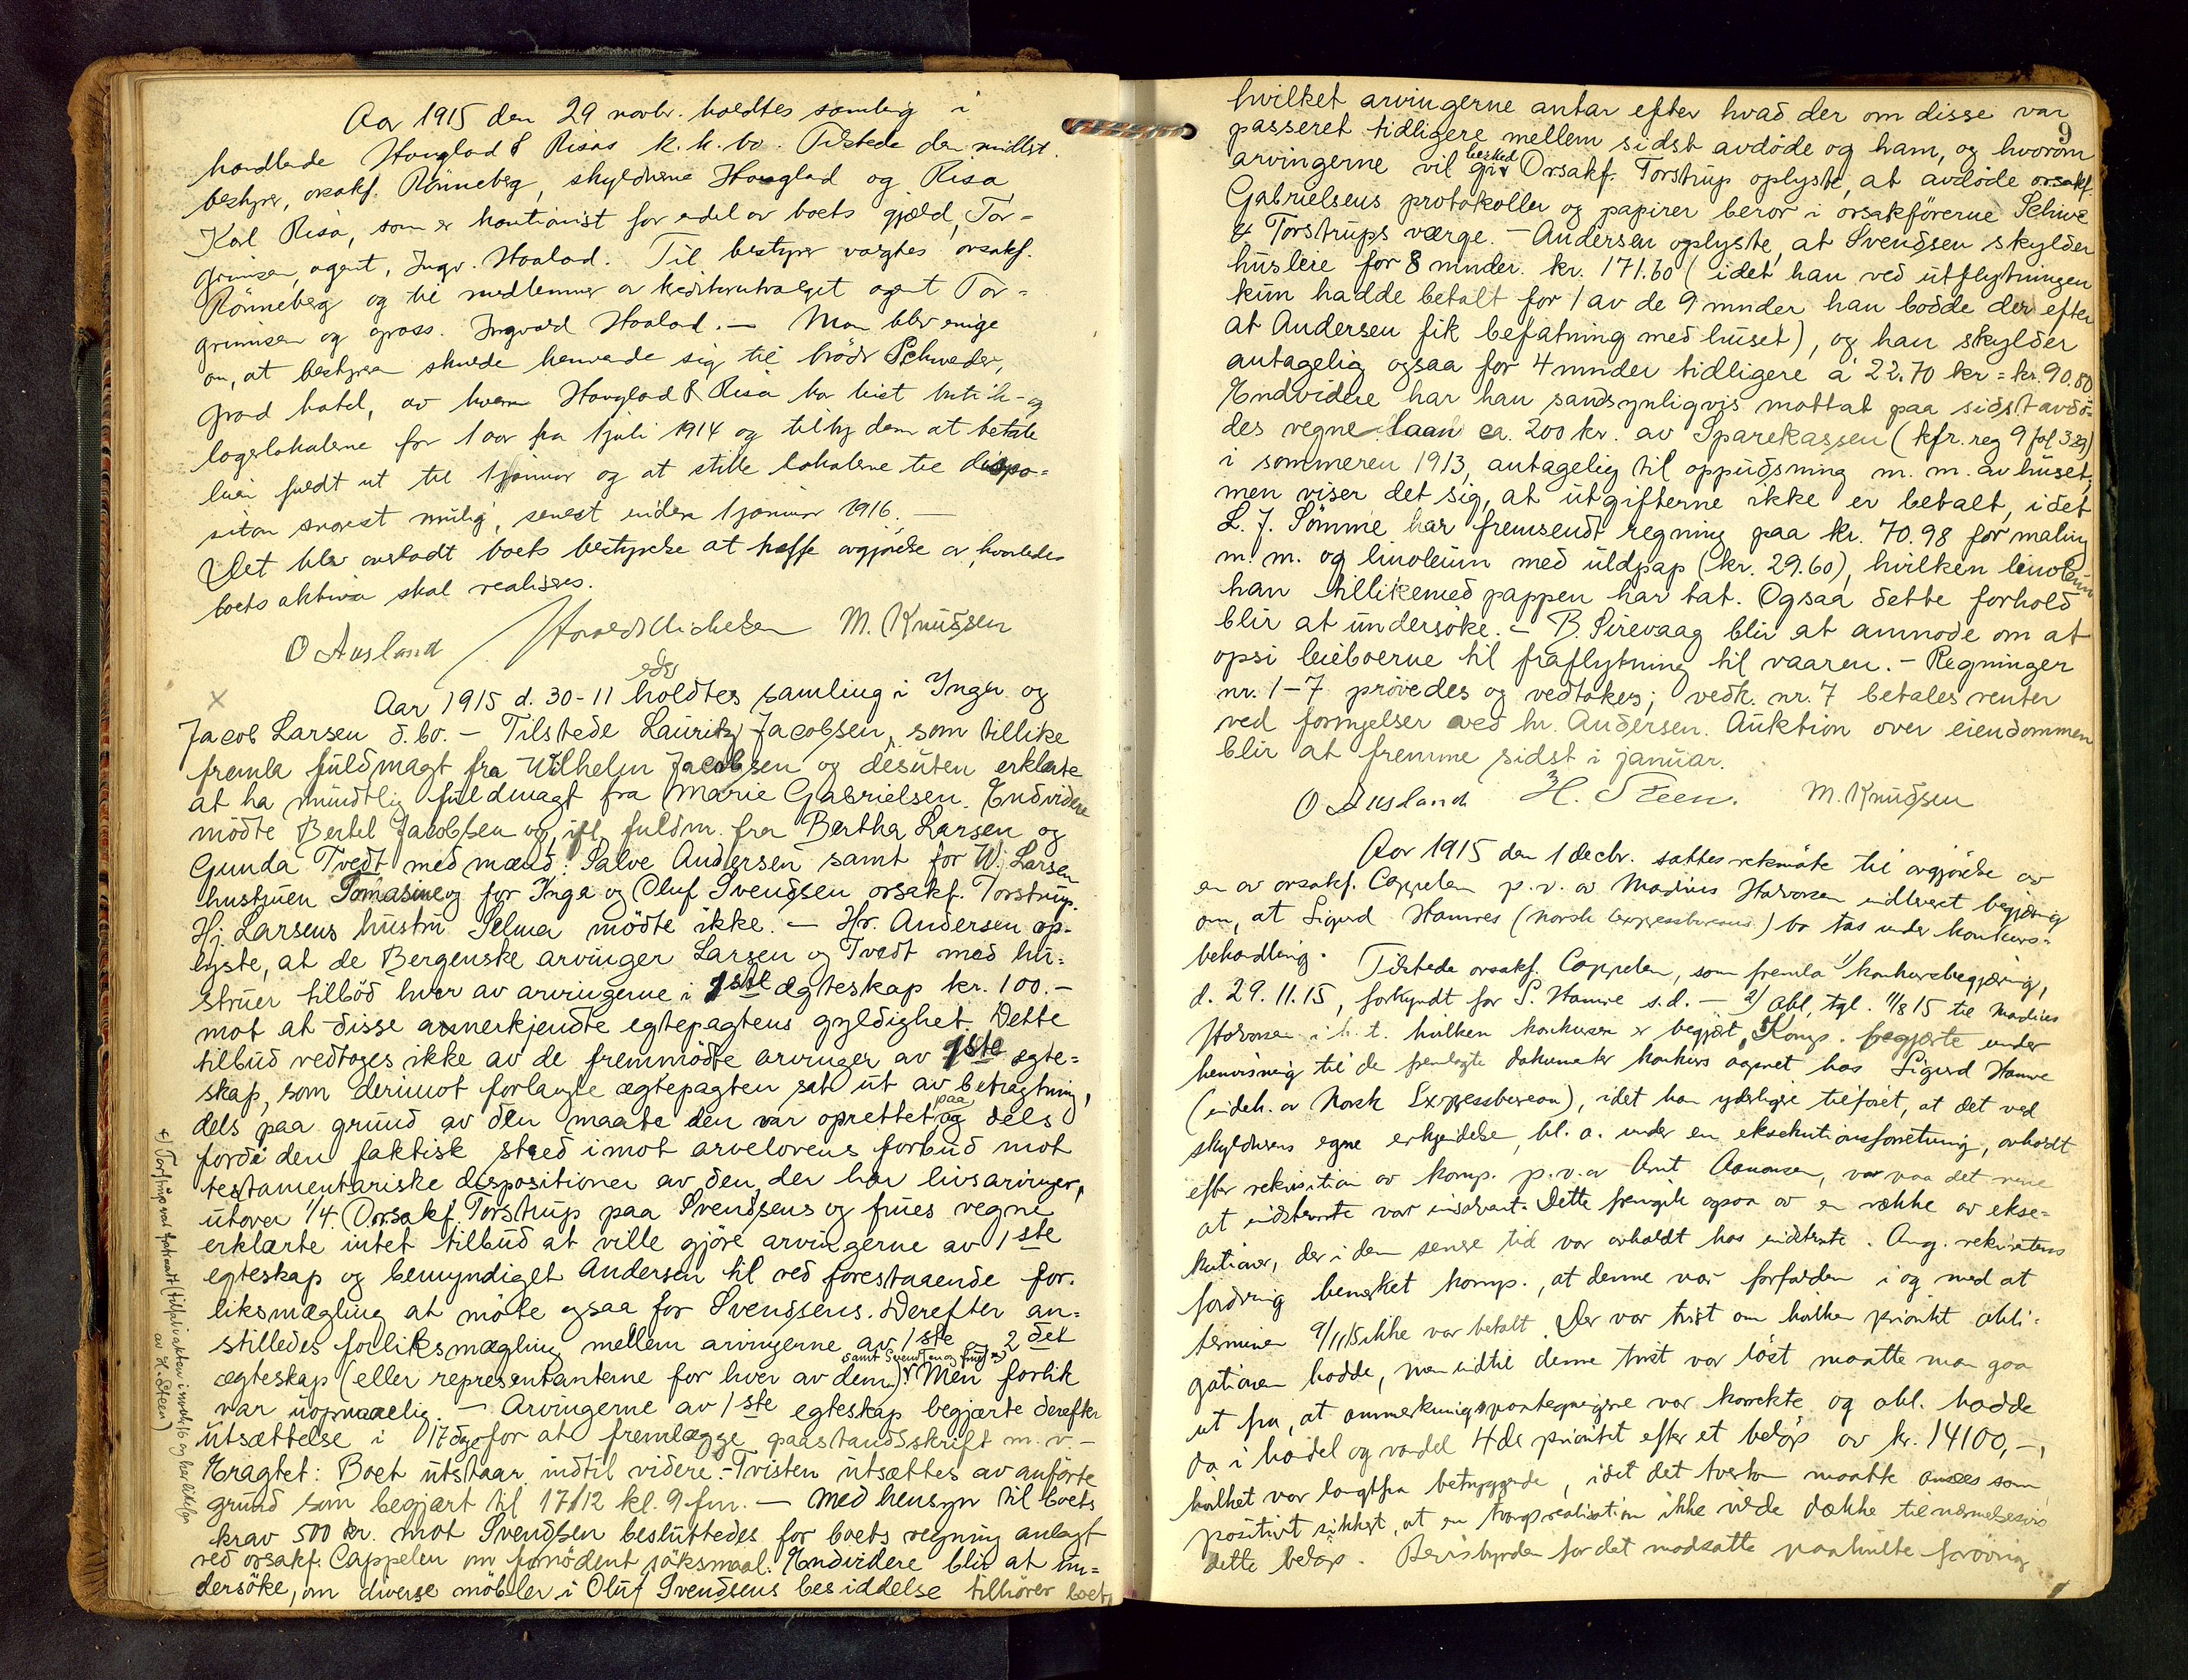 Aar 1915 den 29 novbr. holdtes samling i
handlende Hauglad & Risas k. k. bo. Tilstede den midlst.
bestyrer, orsakf. Rönneberg, skyldnerne Hauglad og Risa,
Karl Risa, som er kautionist for endel av boets gjæld, Tor-
grimsen, agent, Ingv. Haaland. Til bestyrer valgtes orsakf.
Rönneberg og til medlemmer av kreditorutvalget agent Tor-
grimsen og gross. Ingvald Haaland. — Man blev enige
om, at bestyreren skulde henvende sig til brödr Schweder,
Grand hotel, av hvem Hauglad & Risa har leiet butik- og
lagerlokalerne for 1 aar fra 1 juli 1914 og tilby dem at betale
leien fuldt ut til 1 januar og at stille lokalerne til dispo-
sition snarest mulig, senest inden 1 januar 1916. —
Det blev overladt boets bestyrelse at træffe avgjörelse av, hvorledes
boets aktiva skal realiseres.
O Ausland Harald Michelsen M. Knudsen
Aar 1915 d. 30-11 holdtes samling i Inger og
Jacob Larsen d. bo. — Tilstede Lauritz Jacobsen, som tillike
fremla fuldmagt fra Wilhelm Jacobsen og desuten erklærte
at ha mundtlig fuldmagt fra Marie Gabrielsen. Endvidere
mödte Bertel Jacobsen og ifl. fuldm. fra Bertha Larsen og
Gunda Tvedt med mænd: Salve Andersen samt for W. Larsen
hustruen Tomasine og for Inga og Oluf Svendsen orsakf. Torstrup.
Hj. Larsens hustru Selma mödte ikke. — Hr. Andersen op-
lyste, at de Bergenske arvinger Larsen og Tvedt med hu-
struer tilböd hver av arvingerne i 1ste ægteskap kr. 100.—
mot at disse anerkjendte egtepagtens gyldighet. Dette
tilbud vedtoges ikke av de fremmödte arvinger av 1ste egte-
skap, som derimot forlangte ægtepagten sat ut av betragtning,
dels paa grund av den maate den var oprettet paa og dels
fordi den faktisk stred imot arvelovens forbud mot
testamentariske dispositioner av den, der har livsarvinger,
utover 1/4. Orsakf. Torstrup paa Svendsens og frues vegne
erklærte intet tilbud at ville gjöre arvingerne av 1ste
egteskap og bemyndiget Andersen til ved forestaaende for-
liksmægling at möte ogsaa for Svendsens. Derefter an-
stilledes forliksmægling mellem arvingerne av 1ste og 2det
samt Svendsen og frue
ægteskap (eller representanterne for hver av dem). Men forlik
var uopnaaelig. — Arvingerne av 1ste egteskap begjærte derefter
utsættelse i 17 dage for at fremlægge paastandsskrift m. v. —
Eragtet: Boet utstaar indtil videre. — Tvisten utsættes av anförte
grund som begjært til 17/12 kl. 9 fm. — Med hensyn til boets
krav 500 kr. mot Svendsen besluttedes for boets regning anlagt
ved orsakf. Cappelen om fornödent söksmaal. Endvidere blir at un-
dersöke, om diverse möbler i Oluf Svendsens besiddelse tilhörer boet,
9
hvilket arvingerne antar efter hvad der om disse var
passeret tidligere mellem sidst avdöde og ham, og hvorom
arvingerne vil gi besked Orsakf. Torstrup oplyste, at avdöde orsakf.
Gabrielsens protokoller og papirer beror i orsakförerne Schive
& Torstrups værge. — Andersen oplyste, at Svendsen skylder
husleie for 8 mnder. kr. 171.60 (idet han ved utflytningen
kun hadde betalt for 1 av de 9 mnder han bodde der efter
at Andersen fik befatning med huset), og han skylder
antagelig ogsaa for 4 mnder tidligere à 22.70 kr = kr. 90.80
Endvidere har han sandsynligvis mottat paa sidst avdö-
des vegne laan ca. 200 kr. av Sparekassen (kfr. reg 9 fol. 329)
i sommeren 1913, antagelig til oppudsning m. m. av huset,
men viser det sig, at utgifterne ikke er betalt, idet
L. J. Sömme har fremsendt regning paa kr. 70.98 for maling
m. m. og linoleum med uldpap (kr. 29.60), hvilken linoleum
han tillikemed pappen har tat. Ogsaa dette forhold
blir at undersöke. — B. Sirevaag blir at anmode om at
opsi leieboerne til fraflytning til vaaren. — Regninger
nr. 1-7 prövedes og vedtokes; vedk. nr. 7 betales renter
ved fornyelser ved hr. Andersen. Auktion over eiendommen
blir at fremme sidst i januar.
O Ausland H. Steen. M. Knudsen
Aar 1915 den 1 decbr. sattes retsmöte til avgjörelse av
en av orsakf. Cappelen p. v. av Madius Halvorsen indleveret begjæring
om, at Sigurd Hamres (Norsk Expressbureaus) bo tas under konkurs-
behandling. Tilstede orsakf. Cappelen, som fremla 1/ konkursbegjæring,
d. 29.11.15, forkyndt for S. Hamre s. d. — 2/ obl. tgl. 11/8 15 til Madius
Halvorsen i h. t. hvilken konkursen er begjært. Komp. begjærte under
henvisning til de fremlagte dokumenter konkurs aapnet hos Sigurd Hamre
(indeh. av Norsk Expressbureau), idet han yderligere tilföiet, at det ved
skyldnerens egne erkjendelse, bl. a. under en eksekutionsforretning, avholdt
efter rekvisition av komp. p. v. av Arnt Aanonsen, var paa det rene
at indstevnte var insolvent. Dette fremgik ogsaa av en række av ekse-
kutioner, der i den senere tid var avholdt hos indstevnte. Ang. rekvirentens
fordring bemerket komp., at denne var forfalden i og med at
terminen 9/11 15 ikke var betalt. Der var tvist om hvilken prioritet obli-
gationen hadde, men indtil denne tvist var löst maatte man gaa
ut fra, at anmerkningspaategningerne var korrekte og obl. hadde
da i handel og vandel 4de prioritet efter et belöp av kr. 14100,—,
hvilket var langtfra betryggende, idet det tvertom maatte ansees som
positivt sikkert, at en tvangsrealisation ikke vilde dække tilnærmelsesvis
dette belöp. Bevisbyrden for det modsatte paahvilte forövrig
x) Torstrup var fratraadt
av H. Steen)